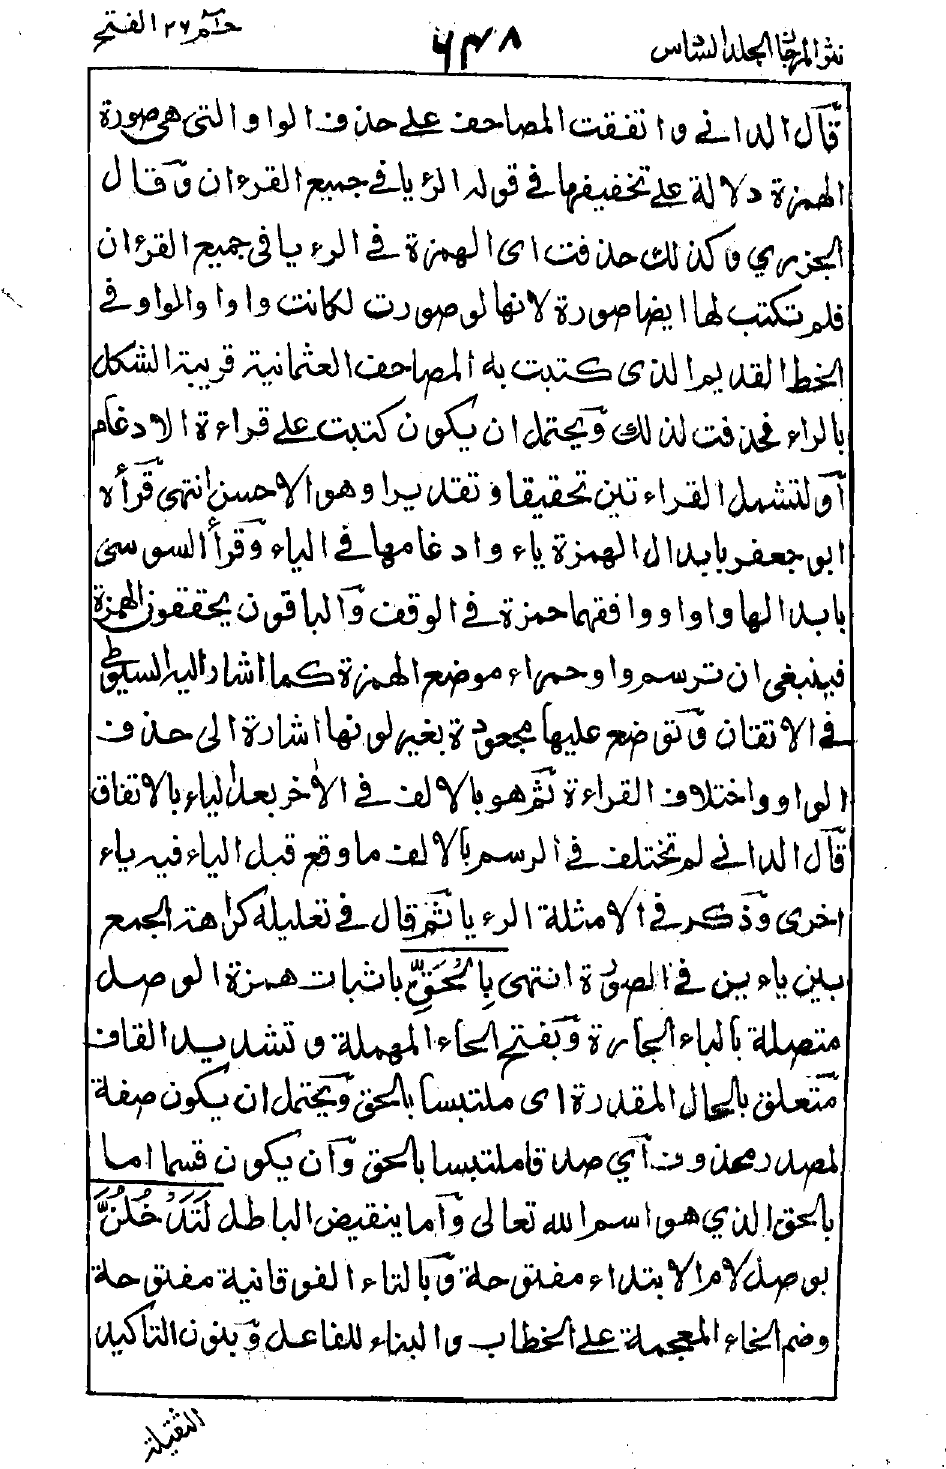 نثر المرجان المجلد السادس
٦٣٨
حٰم ٢٦ الفتح
قال الدانى واتفقت المصاحف على حذف الواو التى هى صورة
الهمزة دلالة على تخفيفها فى قوله الرءيا فى جميع القرءان وقال
الجزرى وكذلك حذفت اى الهمزة فى الرءيا فى جميع القرءان
فلم تكتب لها ايضا صورة لانها لو صورت لكانت واوا والواو فى
الخط القديم الذى كتبت به المصاحف العثمانية قريبة الشكل
بالراء فحذفت لذلك ويحتمل ان يكون كتبت على قراءة الادغام
او لتشمل القراءتين تحقيقا وتقديرا وهو الاحسن انتهى قرأه
ابو جعفر بابدال الهمزة ياء وادغامها فى الياء وقرأ السوسى
بابدالها واوا ووافقهما حمزة فى الوقف والباقون يحققون الهمزة
فينبغى ان ترسم واو حمراء موضع الهمزة كما اشار اليه السيوطى
فى الاتقان وتوضع عليها مجعودة بغير لونها اشارة الى حذف
الواو واختلاف القراءة ثم هو بالالف فى الأخر بعد الياء بالاتفاق
قال الدانى لم تختلف فى الرسم بالالف ما وقع قبل الياء فيه ياء
اخرى وذكر فى الامثلة الرءيا ثم قال فى تعليله كراهة الجمع
بين ياءين فى الصورة انتهى بِالْحَقِّ باثبات همزة الوصل
متصلة بالباء الجارة وبفتح الحاء المهملة وتشديد القاف
متعلق بالحال المقدرة اى ملتبسا بالحق ويحتمل ان يكون صفة
لمصدر محذوف اي صدقا ملتبسا بالحق وان يكون قسما اما
بالحق الذي هو اسم الله تعالى واما بنقيض الباطل لَتَدْخُلُنَّ
بوصل لام الابتداء مفتوحة وبالتاء الفوقانية مفتوحة
وضم الخاء المعجمة على الخطاب والبناء للفاعل وبنون التاكيد
الثقيلة